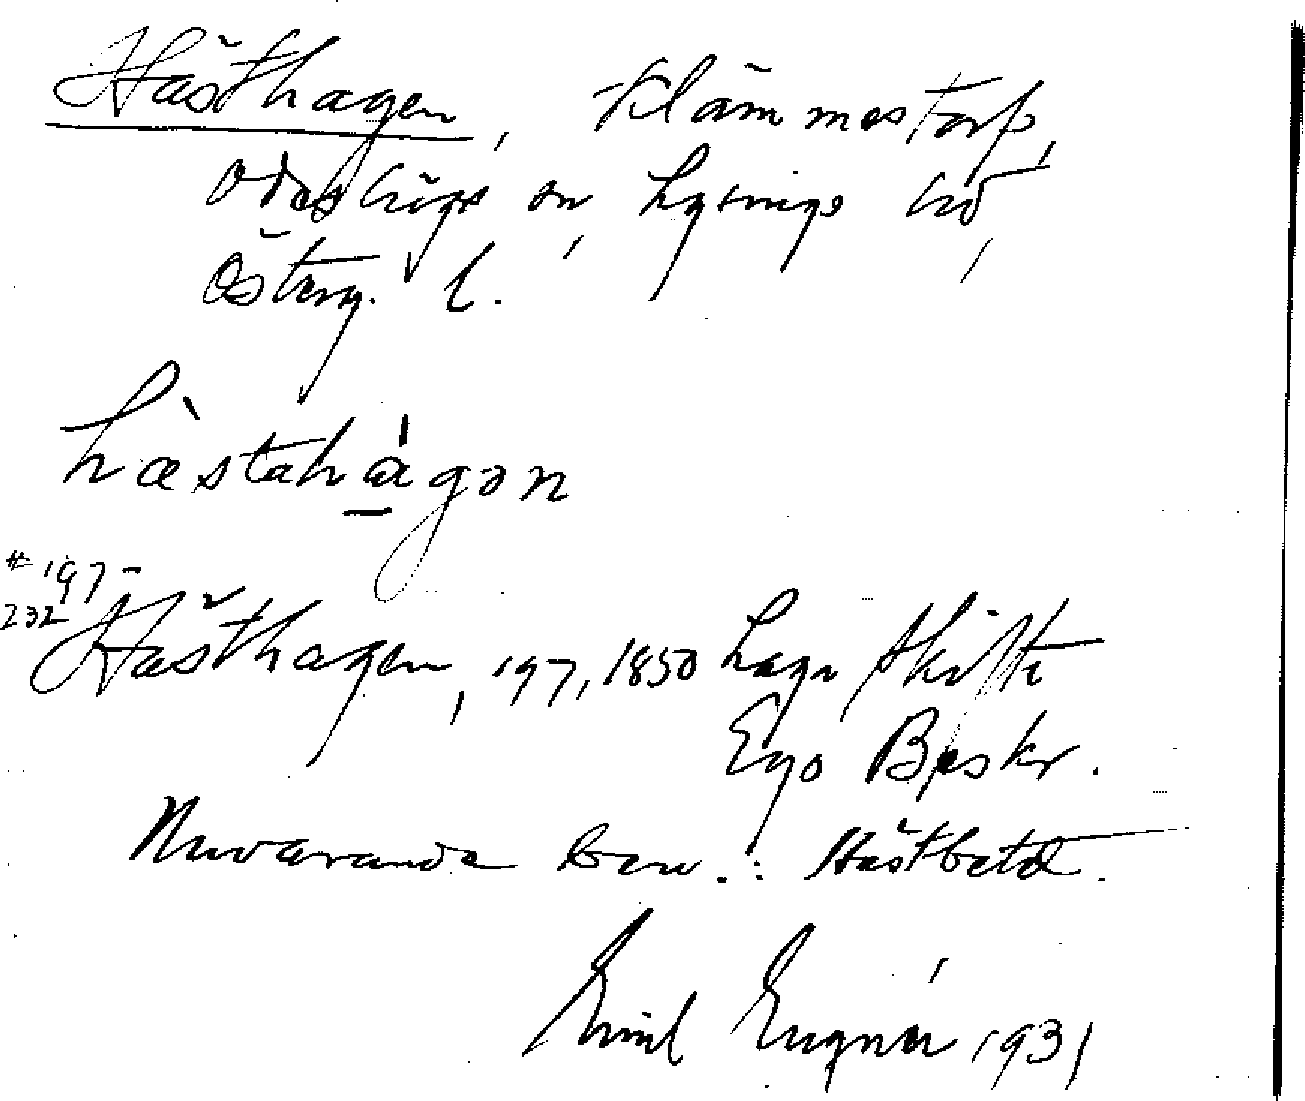 Hästhagen, Klämmestorp,
Ödeshögs sn, Lysings hd,
Österg. l.
hὰstahágən
# 197-
232
Hästhagen, 197, 1850 Laga skifte
Ego Beskr.
Nuvarande benv.: Hästbete.
Emil Engnér 1931